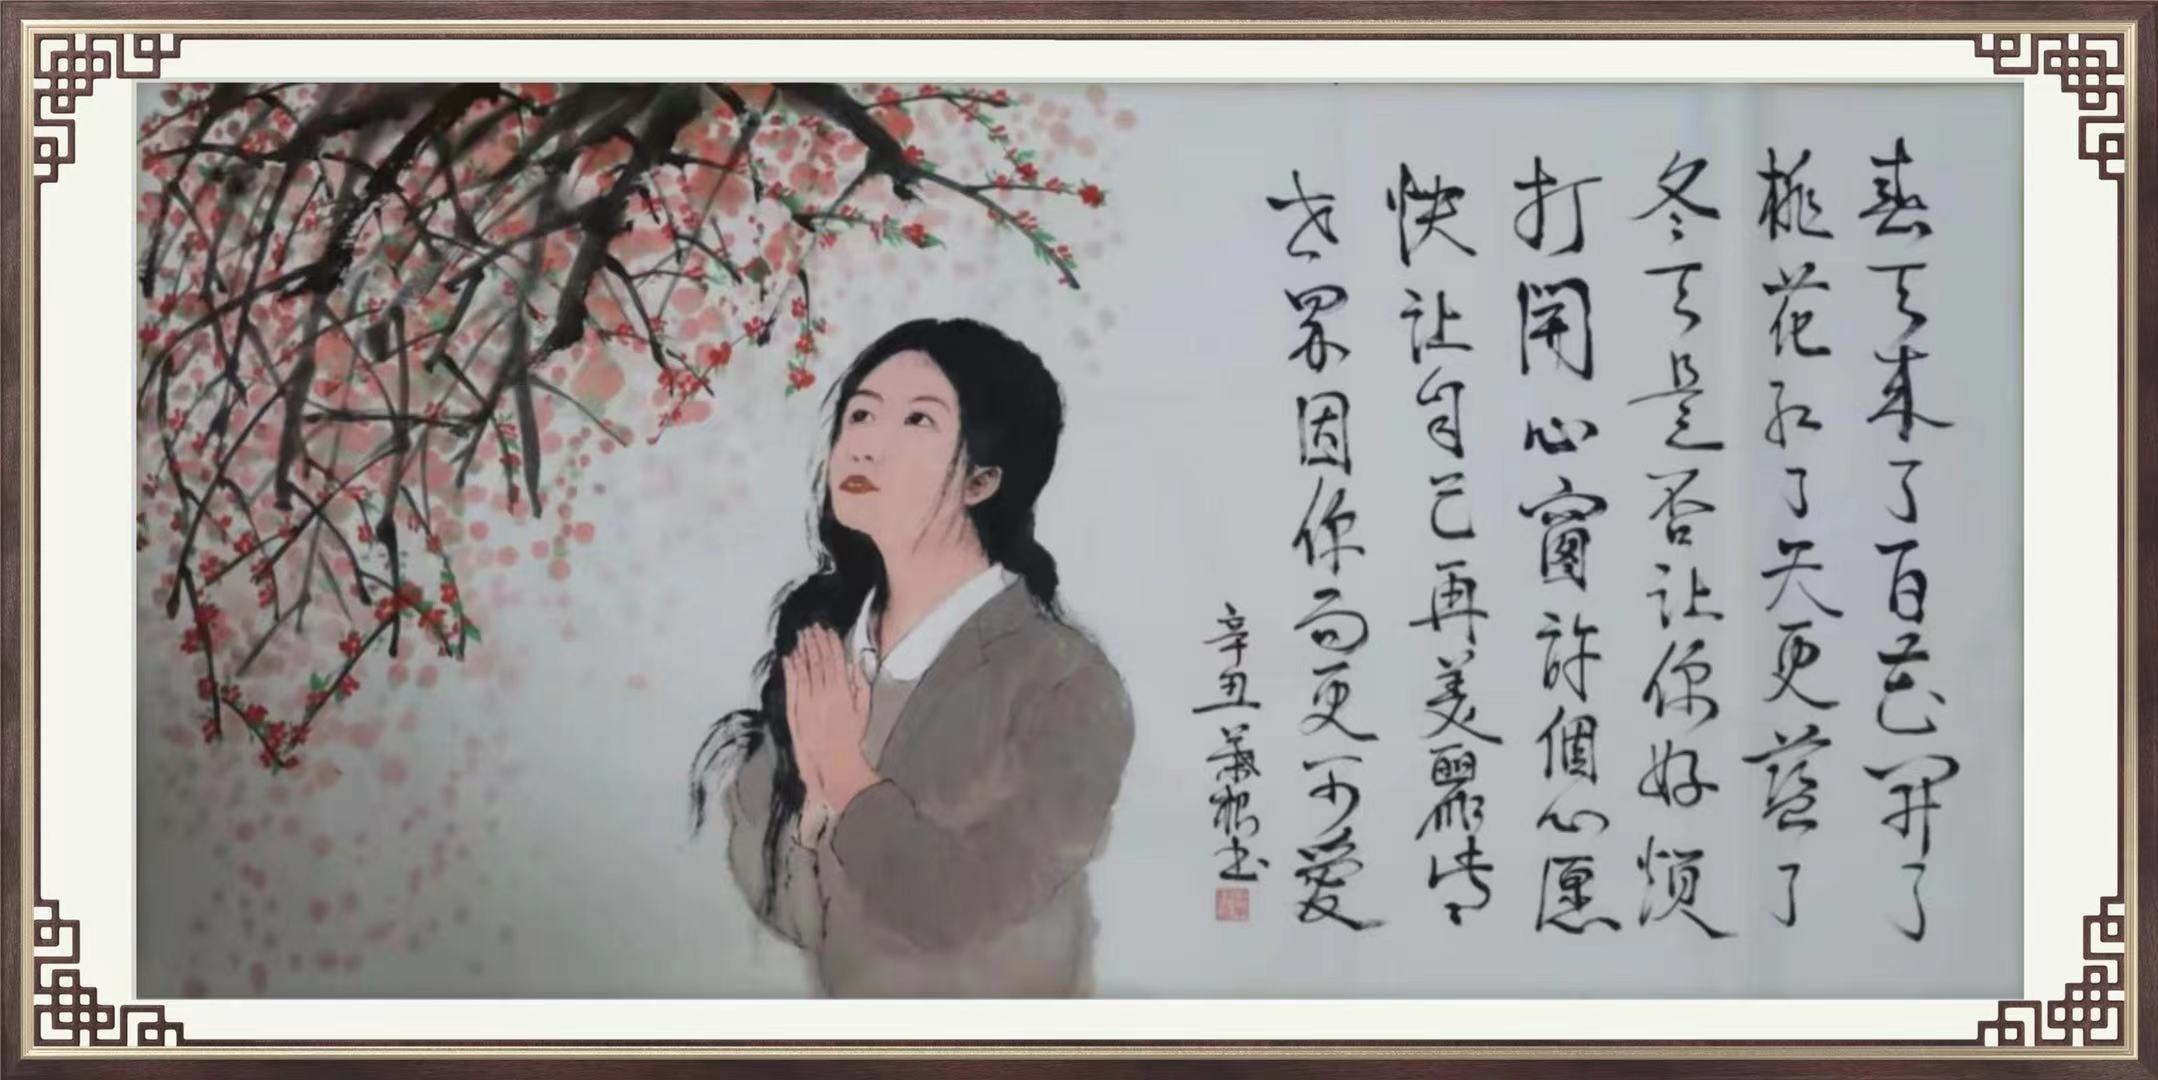 春天来了百花開了
桃花红了天更蓝了
冬天是否让你好烦
打開心窗許個心愿
快让自己再美麗
世界因你而更可愛
辛丑 根书